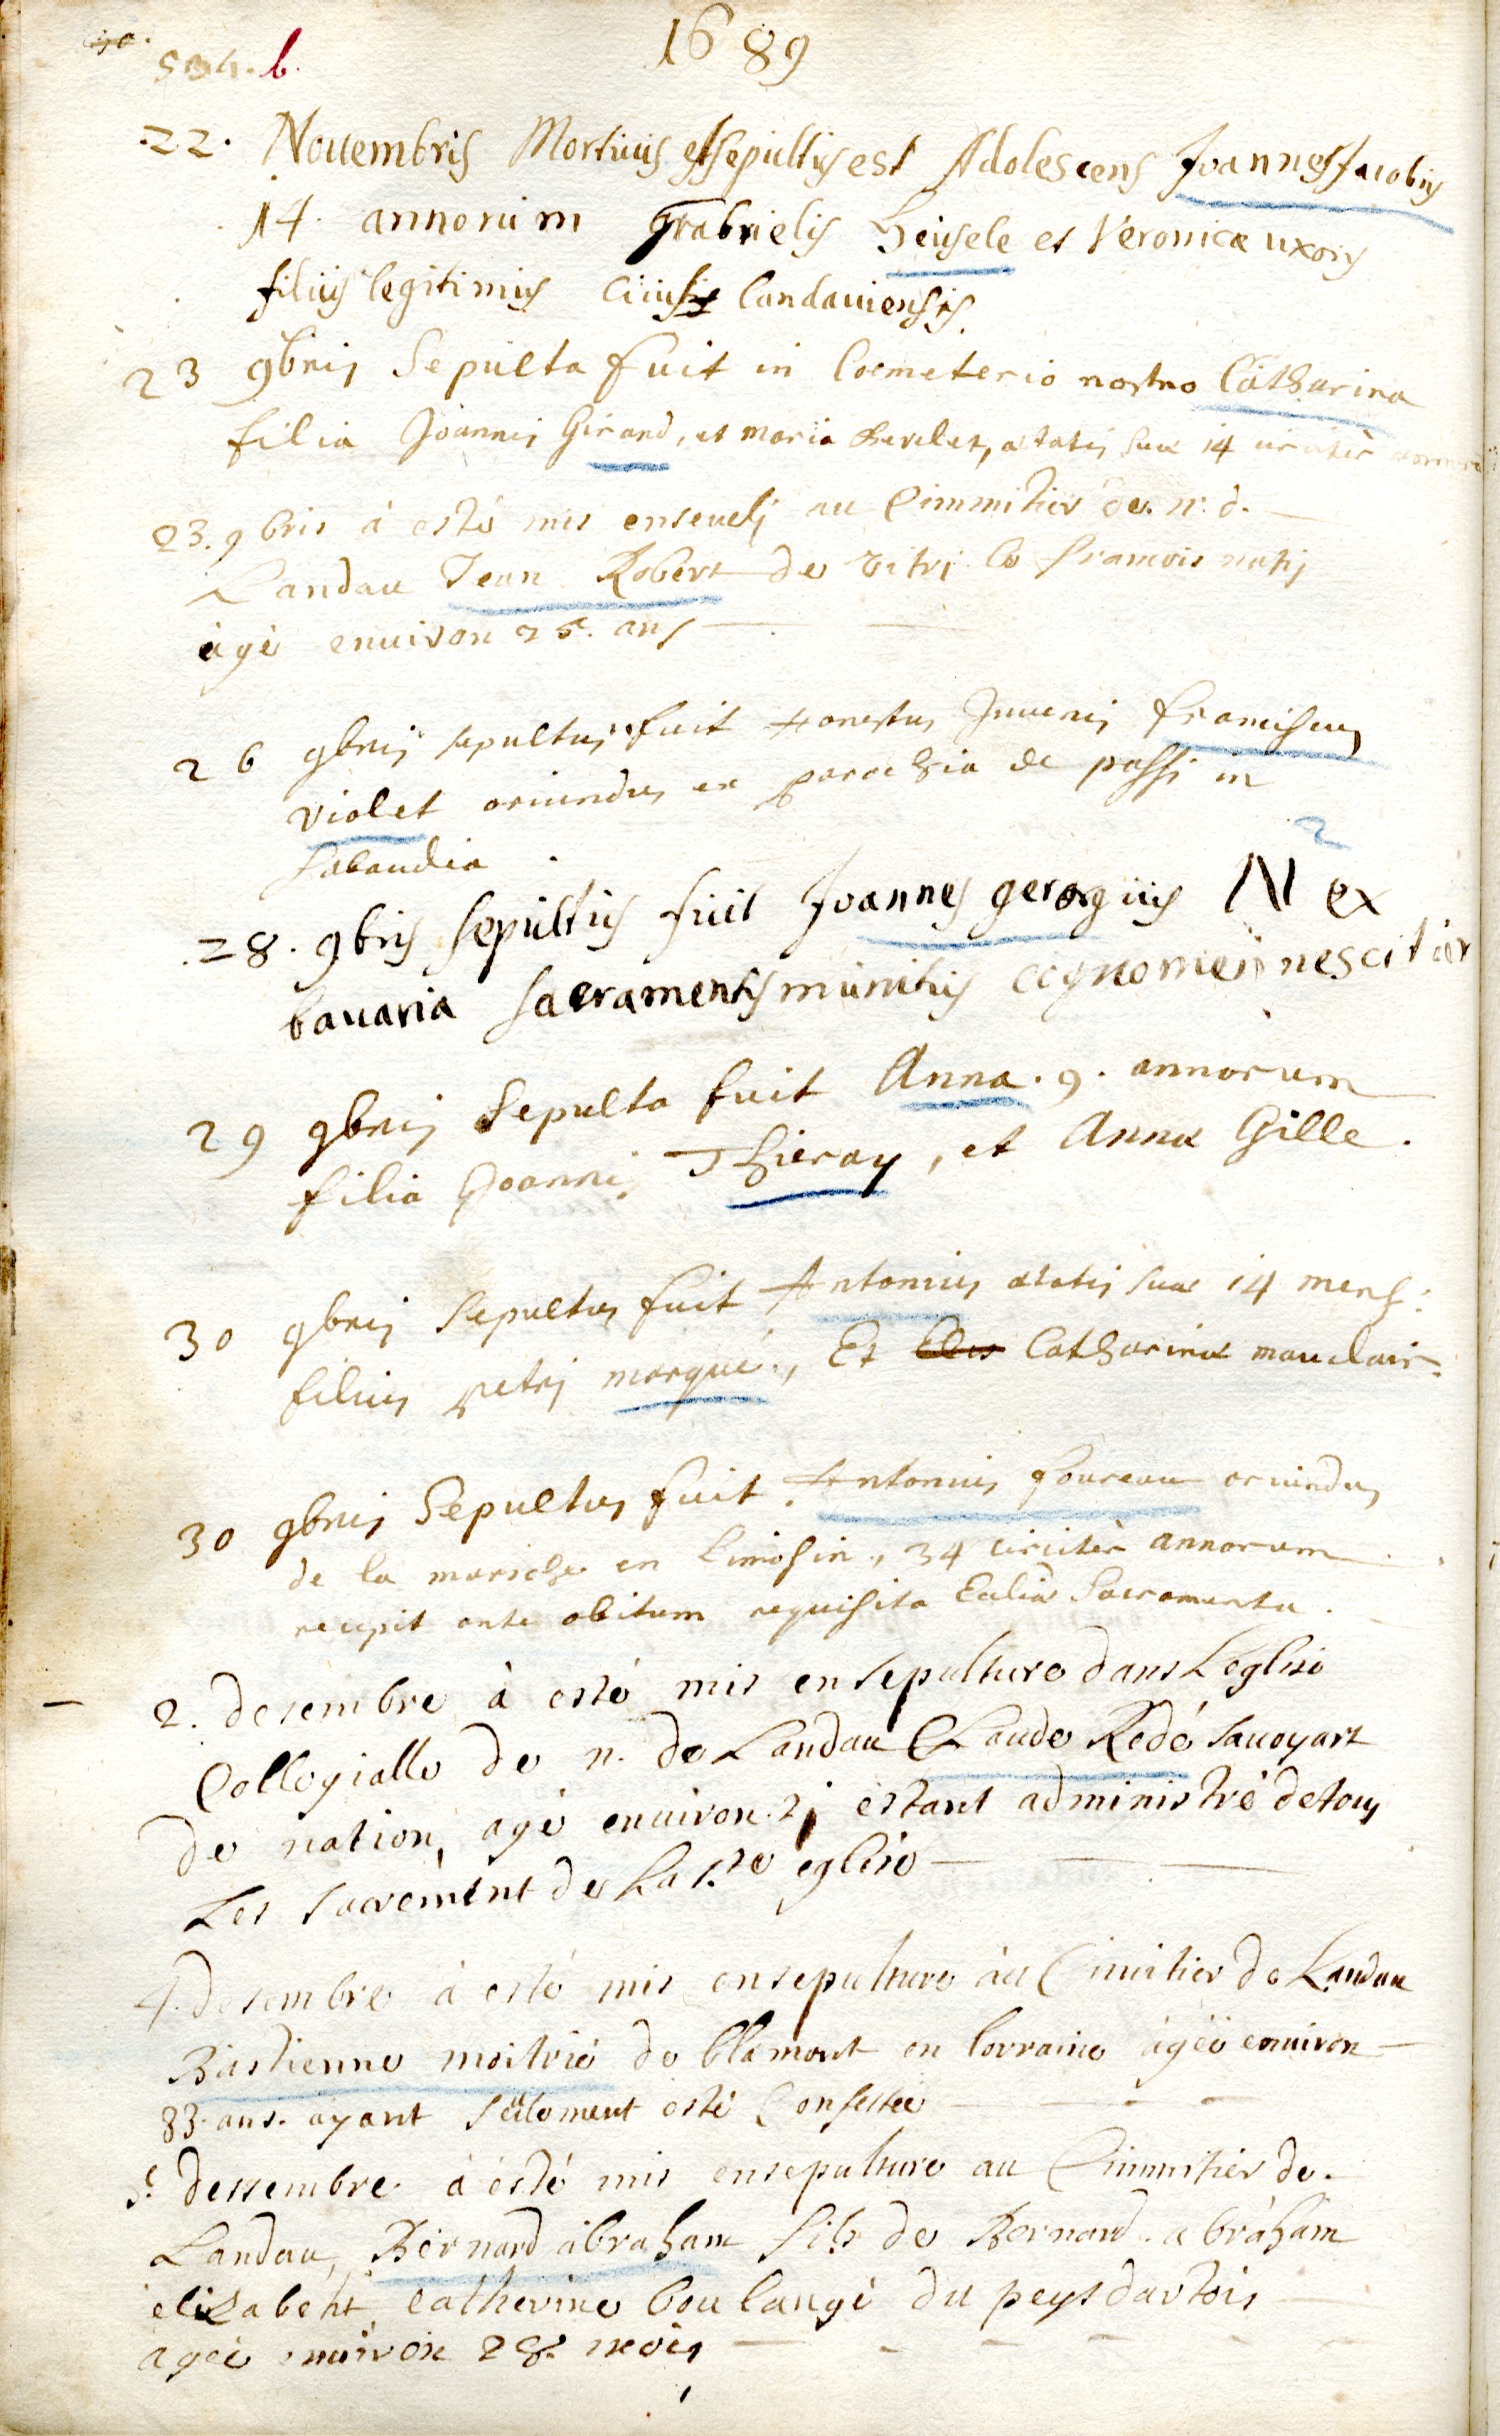 1689
504. b.
.22. Nouembris Mortuus et sepultus est Adolescens Joannes Jacobus
14. annorum Gabrielis Heisele et Veronicæ uxoris
filius legitimus ciuis landauiensis.
23 9bris Sepulta fuit in Coemeterio nostro Catharina
filia Joannis Girard, et maria Chevelet, ætatis suæ 14 circiter
23. 9bris à esté mis enseuelj au Cimmitier de. n. d.
Landau Jean Robert de vitri le francois natif
àgé enuiron 25. ans
26 9bris sepultus fuit honestus Juuenis franciscus
violet oriundus ex parochia de passi in
sabaudia
2
.28. 9bris sepultus fuit Joannes georgius N ex
bauaria sacramentis munitus cognomen nescitur
29 9bris Sepulta fuit Anna. 9. annorum
filia Joannis Thieray, et Annæ Gille.
30 9bris Sepultus fuit Antonius ætatis suæ 14 mens:
filius petri marqué, Et Catharinæ mauclair.
30 9bris Sepultus fuit Antonius foureau oriundus
de la mariche en Limosin, 34 circiter annorum
recepit ante obitum requisita Ecliæ Sacramenta.
2. desembre à esté mis en sepulture dans Leglise
Collegialle de n. de Landau Claude Redé sauoyart
de nation, agé enuiron 2j estant administré de tous
Les sacrement de La s.te eglise
4. desembre à esté mis ensepulture àu Cimitier de Landau
Bastienne moitrié de blamont en lorraine àgéé enuiron
83. ans. ayant seulement esté Confessée
5. dessembre à ésté mis ensepulture au Cimmitier de.
Landau, Bernard àbraham fils de Bernard. abràham
elisabeht catherine boulangé du peys dartois
agée enuiron 28. mois